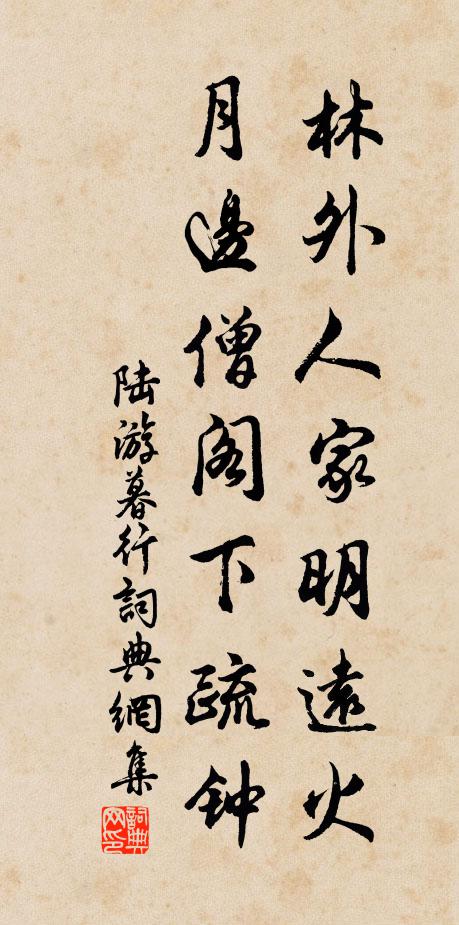 林外人家明遠火
月邊僧阁下疏钟
陆游暮行詞典網集
詞典网印